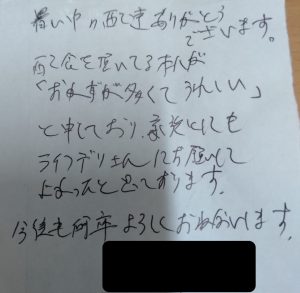 暑い中の配達ありがとう
ございます。
配食を頂いてる本人が
「おかずが多くてうれしい」
と申しており、家族としても
ライフデリさんにお願いして
よかったと思っております。
今後も何卒よろしくおねがいします。